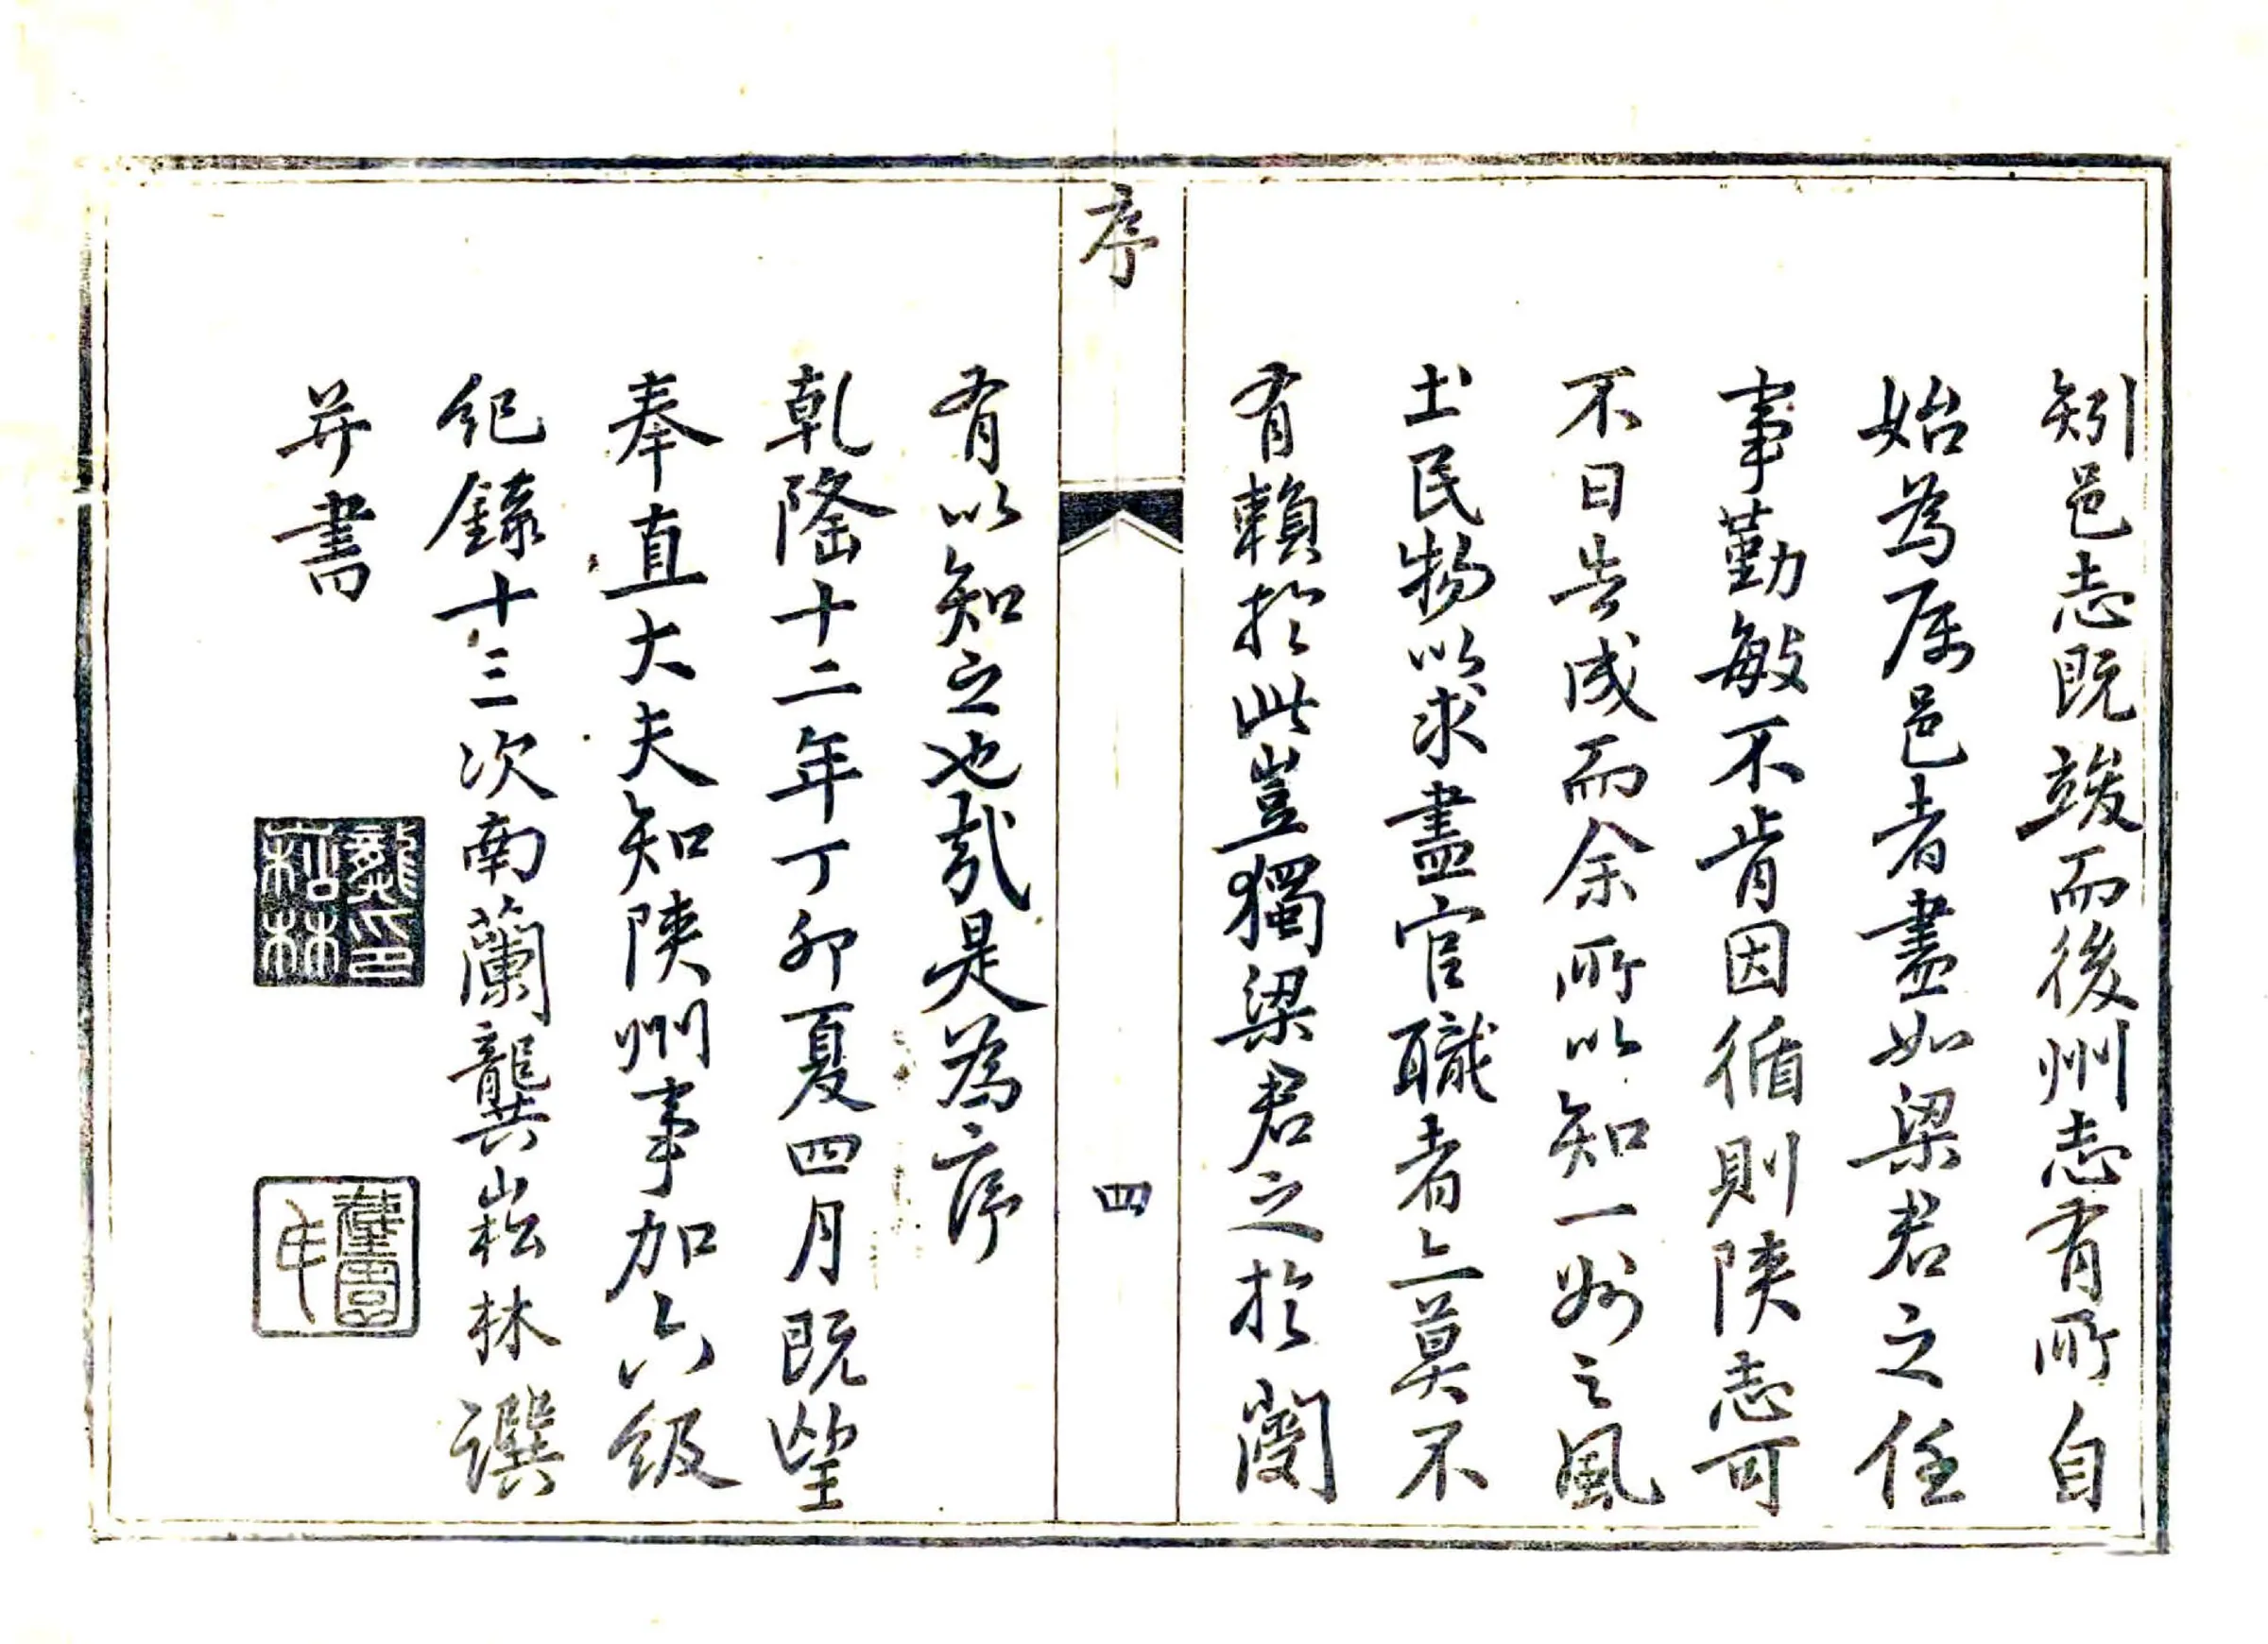 矧邑志既竣而後州志有所自
始為属邑者盡如梁君之任
事勤敏不肯因循則陜志可
不日告成而余所以知一州之風
土民物以求盡官職者亦莫不
有賴於此豈獨梁君之於閿
序
四
有以知之也哉是為序
乾隆十二年丁卯夏四月既望
奉直大夫知陜州事加六級
紀錄十三次南蘭龔崧林譔
并書
龔印崧林